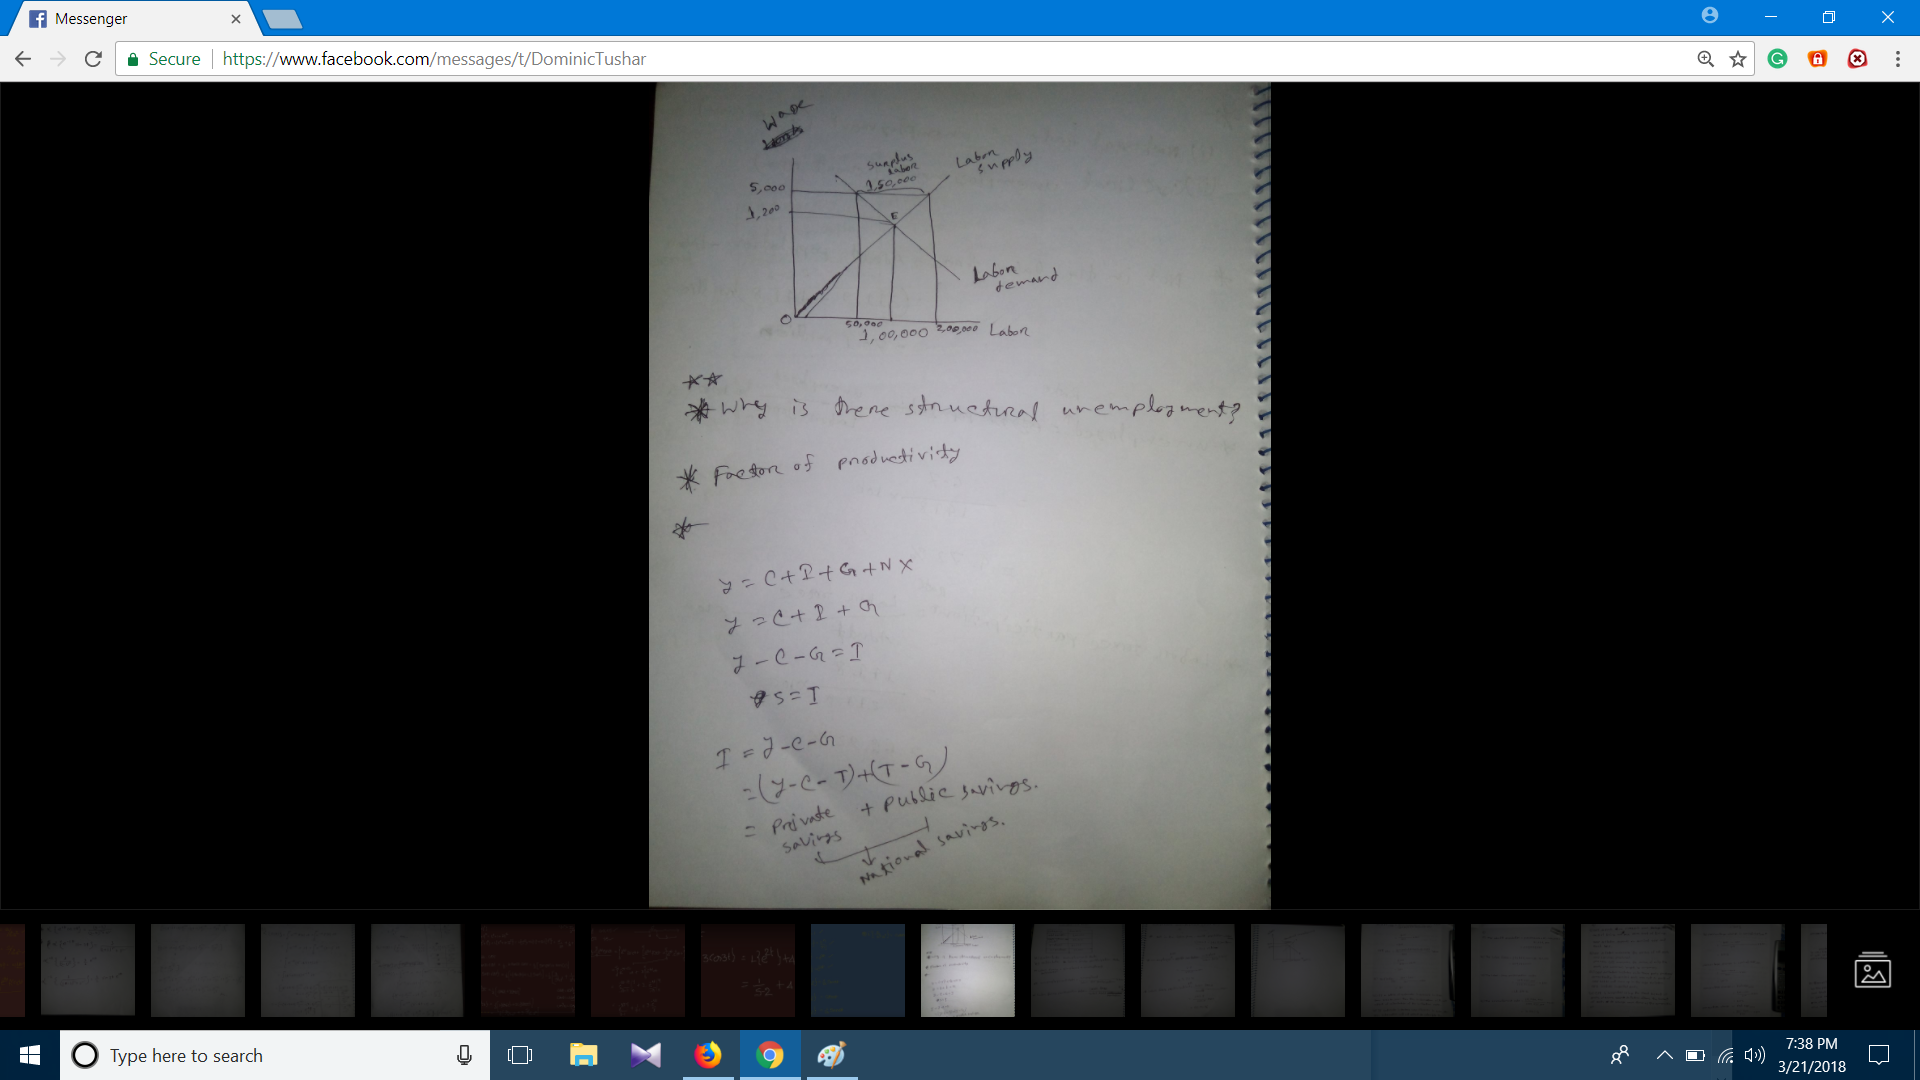 Messenger
Secure
https://www.facebook.com/messages/t/DominicTushar
Wage
5,000
1,200
surplus
labor
1,50,000
Labor
supply
E
Labor
demand
O
50,000
1,00,000
2,00,000
Labor
Why is there structural unemployment?
Factor of productivity
y = C+I+G+NX
y = C+I+G
y-C-G=I
S=I
I = y-C-G
=(y-C-T)+(T-G)
= Private savings + Public savings.
National savings.
Type here to search
7:38 PM
3/21/2018